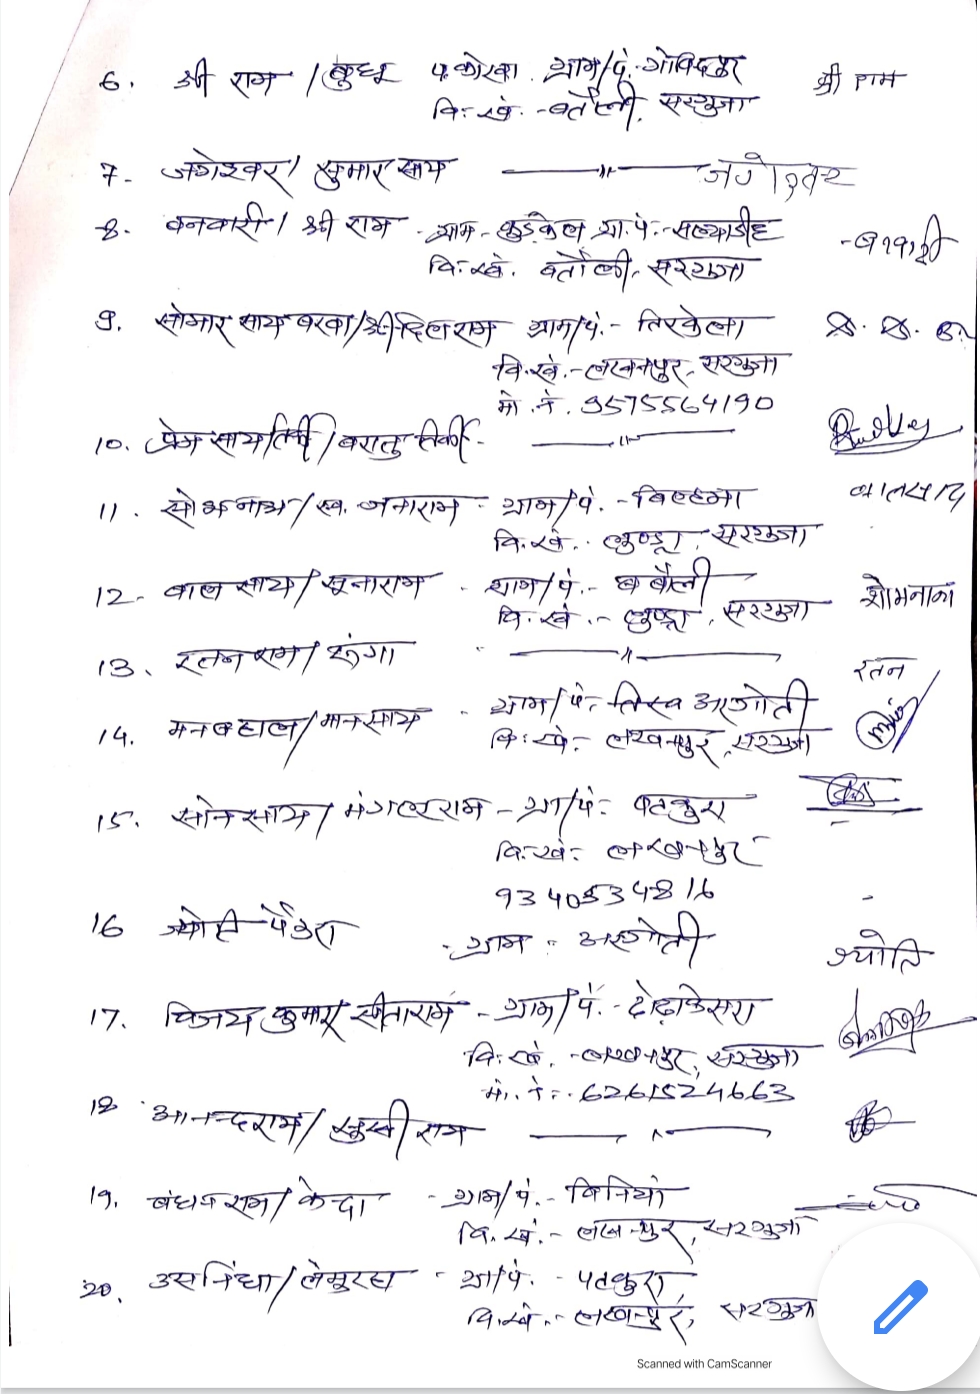 6. श्री राम / बुधु प. कोरवा ग्राम/पं.-गोविन्दपुर श्री राम
वि.खं.-बतौली, सरगुजा
7- जगेश्वर/ सुकुमार साय —— " —— जगेश्वर
8. बनवारी / श्री राम - ग्राम- कुड़केल ग्रा.पं.-सल्याडीह - बनवारी
वि.खं. बतौली, सरगुजा
9. सोमार साय बरवा/श्री दिलराम ग्राम/पं.- तिरकेला
वि.खं.-लखनपुर, सरगुजा
मो.नं. 9575564190
10. प्रेम साय तिर्की/बरातु तिर्की- —— " ——
11. सोभनाथ/स्व. जनाराम - ग्राम/पं.-बिल्हमा बालसाय
वि.खं. लुण्ड्रा, सरगुजा
12- बाल साय/ सूनाराम - ग्राम/पं.- बबौली शोभनाथ
वि.खं.- लुण्ड्रा, सरगुजा
13. रतन राम/ रूंगा —— " —— रतन
14. मनबहाल/मानसाय - ग्राम/पं-
वि.खं.- लखनपुर, सरगुजा
15. सोनसाय/ मंगलराम - ग्रा/पं- पटकुरा
वि.खं- लखनपुर
9340534816
16 ज्योति पैंकरा - ग्राम - अरगोती ज्योति
17. विजय कुमार/सीताराम - ग्राम/पं.- ढोढ़ाकेसरा
वि.खं.-लखनपुर, सरगुजा
मो. नं.- 6261524663
18 आनन्दराम/ सुखी राम —— " ——
19. बंधन राम/ केन्दा - ग्राम/पं.- बिनिया
वि.खं.- लखनपुर, सरगुजा
20. / लेमुरहा - ग्रा/पं. - पटकुरा,
वि.खं.- लखनपुर, सरगुजा
Scanned with CamScanner